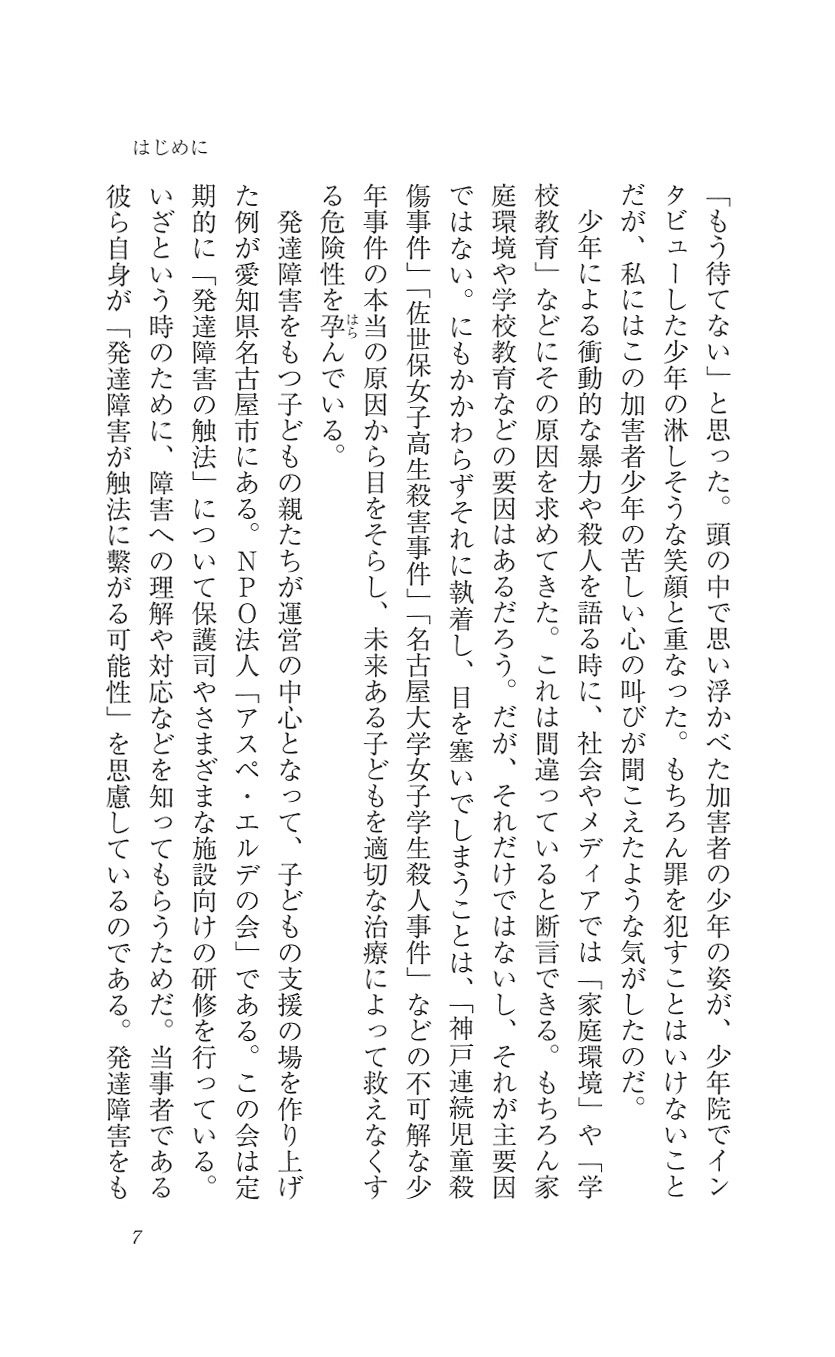 はじめに
「もう待てない」と思った。頭の中で思い浮かべた加害者の少年の姿が、少年院でイン
タビューした少年の淋しそうな笑顔と重なった。もちろん罪を犯すことはいけないこと
だが、私にはこの加害者少年の苦しい心の叫びが聞こえたような気がしたのだ。
少年による衝動的な暴力や殺人を語る時に、社会やメディアでは「家庭環境」や「学
校教育」などにその原因を求めてきた。これは間違っていると断言できる。もちろん家
庭環境や学校教育などの要因はあるだろう。だが、それだけではないし、それが主要因
ではない。にもかかわらずそれに執着し、目を塞いでしまうことは、「神戸連続児童殺
傷事件」「佐世保女子高生殺害事件」「名古屋大学女子学生殺人事件」などの不可解な少
年事件の本当の原因から目をそらし、未来ある子どもを適切な治療によって救えなくす
る危険性を孕んでいる。
はら
発達障害をもつ子どもの親たちが運営の中心となって、子どもの支援の場を作り上げ
た例が愛知県名古屋市にある。ＮＰＯ法人「アスペ・エルデの会」である。この会は定
期的に「発達障害の触法」について保護司やさまざまな施設向けの研修を行っている。
いざという時のために、障害への理解や対応などを知ってもらうためだ。当事者である
彼ら自身が「発達障害が触法に繋がる可能性」を思慮しているのである。発達障害をも
7